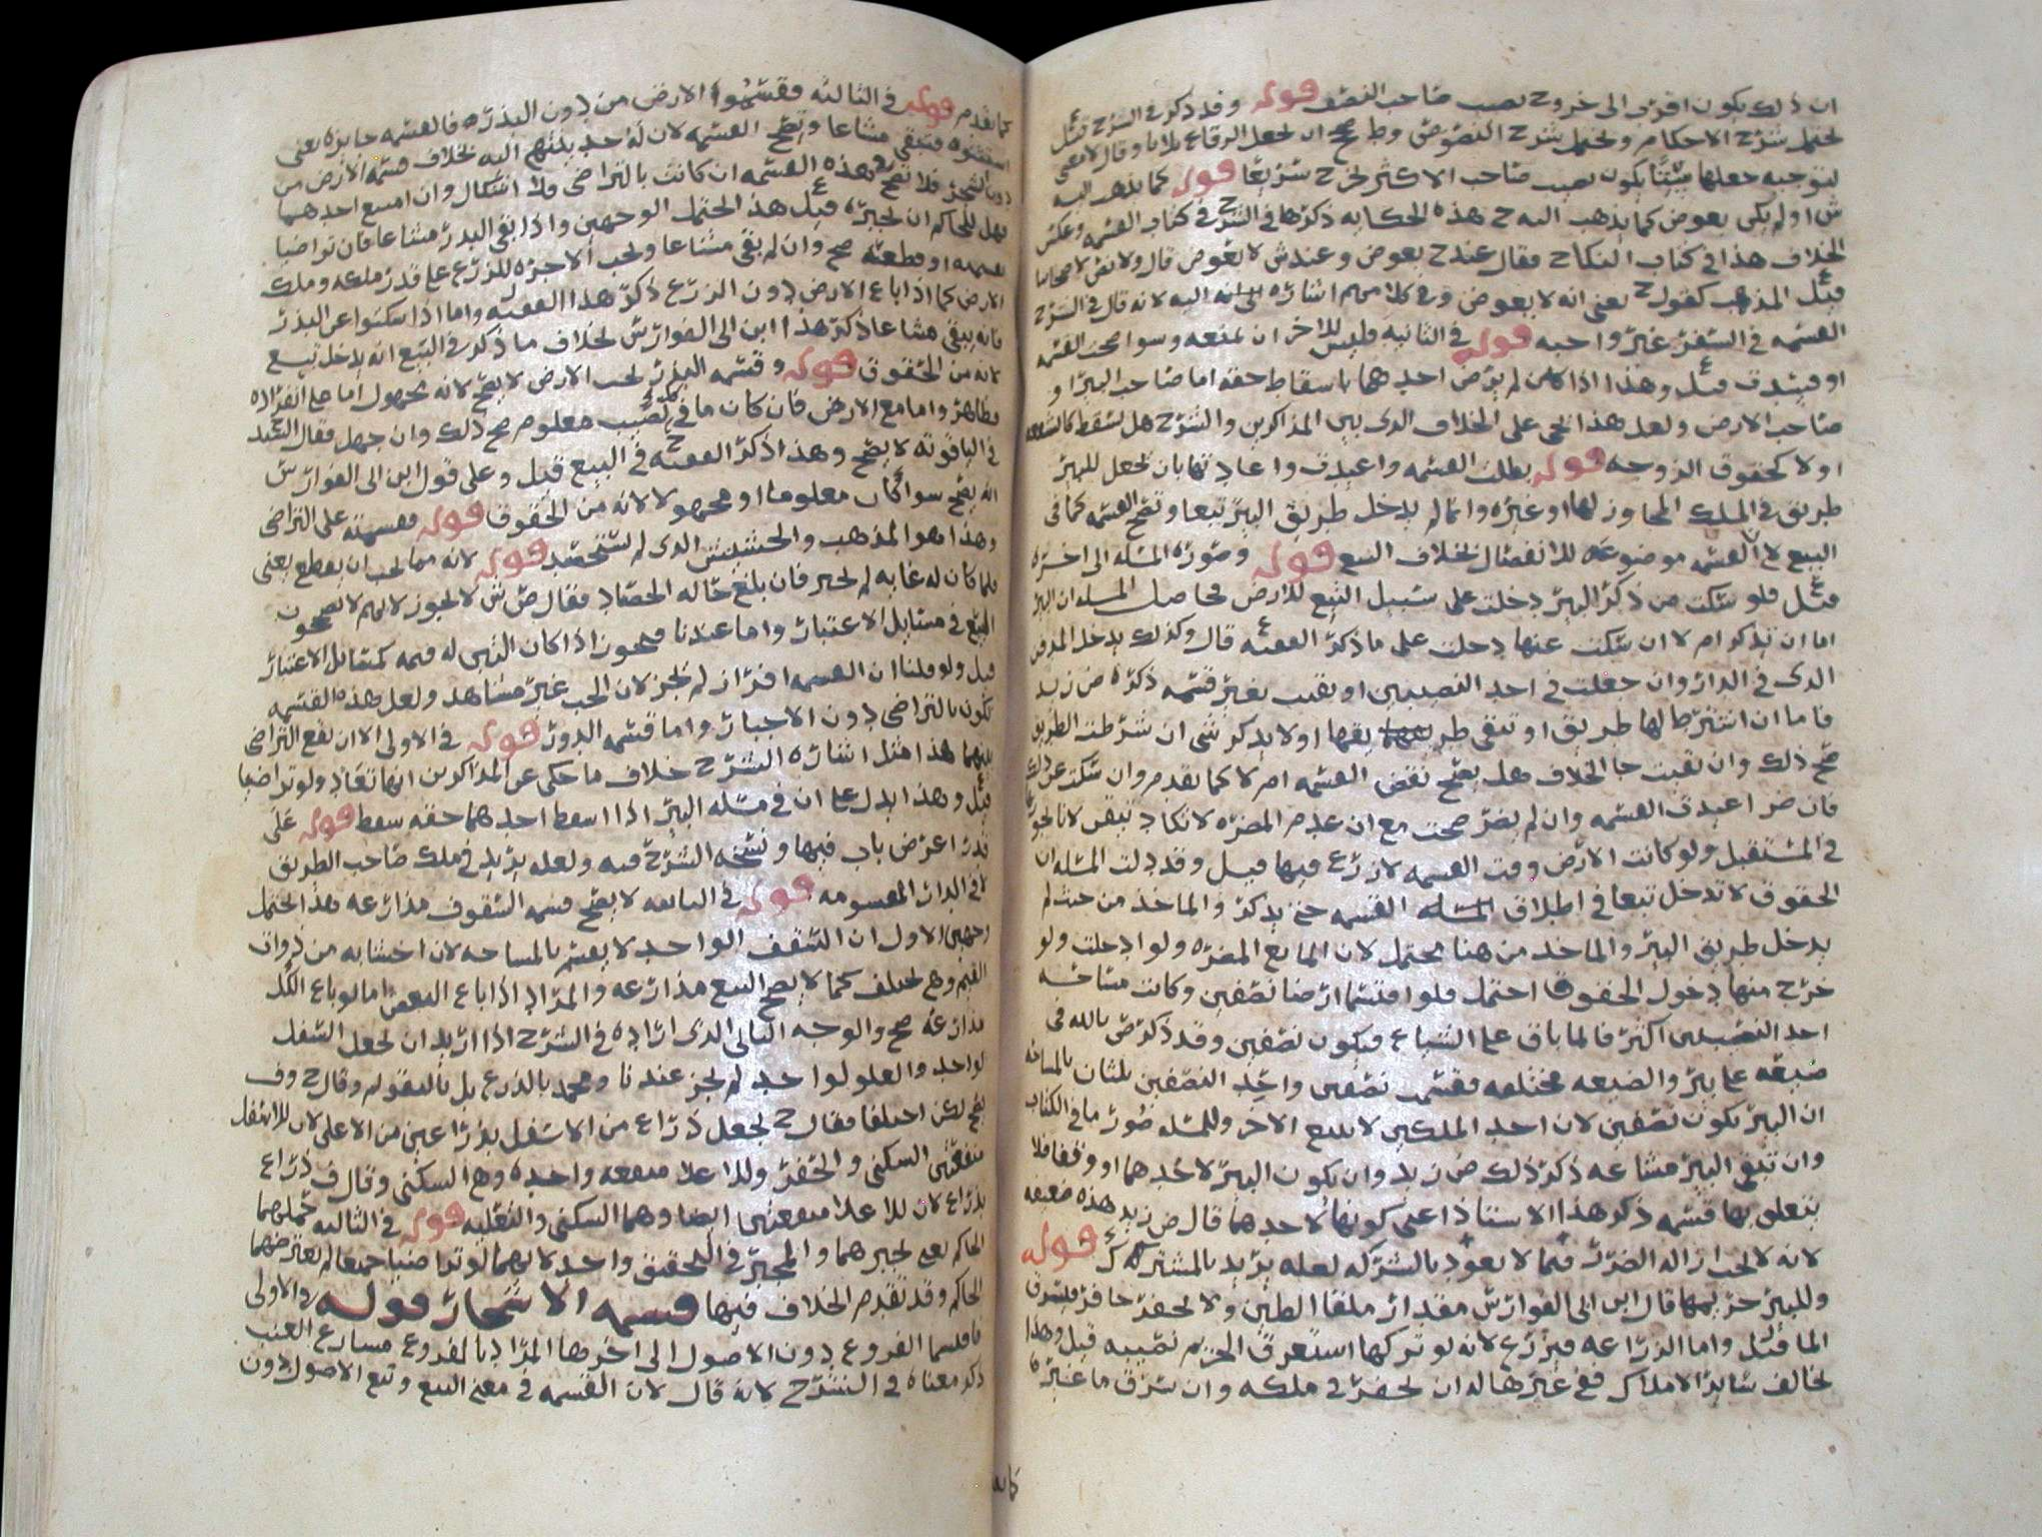 ان ذلك يكون اقرب الى خروج نصيب صاحب النصف قوله وقد ذكر في الشرح قيل
يحتمل شرح الاحكام ويحتمل شرح النصوص وط صح ان يجعل الرقاع ثلاثا وقال
لتوجبه جعلها ستا يكون نصيب صاحب الاكثر يخرج سريعا قوله كما يذهب اليه
ش او لم يكن بعوض كما يذهب اليه ح هذه الحكايه ذكرها في الشرح في كتاب القسمه وعكس
الخلاف هذا في كتاب النكاح فقال عند ح بعوض وعند ش لا بعوض قال ولا نص لاصحابنا
قيل المذهب كقول ح يعني انه لا بعوض وفي كلامهم اشاره اليه لانه قال في الشرح
القسمه في السفر غير واجبه قوله في الثانيه وليس للاخر ان يمنعه وسوا صحت القسمه
او فسدت قيل وهذا اذا كان لم يرض احدهما باسقاط حقه اما صاحب البير او
صاحب الارض ولعل هذا يجي على الخلاف الذي بين المذاكرين والشرح هل يسقط كالشفعه
او لا كحقوق الزوجه قوله بطلت القسمه واعيدت واعادتها بان يجعل للبير
طريق في الملك المجاوز لها او غيره وانما لم يدخل طريق البير تبعا وتصح القسمه كما في
البيع لان القسمه موضوعه للانفصال بخلاف البيع قوله وصوره المسله الى اخره
قيل فلو سكت من ذكر البير دخلت على سبيل التبع للارض فحاصل المسله ان البير
اما ان تذكر ام لا ان سكت عنها دخلت على ما ذكر الفقيه ع قال وكذلك يدخل المدفن
الذي في الدار وان جعلت في احد النصيبين او بقيت بغير قسمه ذكره ض زيد
فاما ان اشترطا لها طريق او تبقى طريقها او لا يذكر شي ان شرطت الطريق
صح ذلك وان نفيت جا الخلاف هل يصح نقض القسمه ام لا كما تقدم وان سكت عن ذلك
فان ضر اعيدت القسمه وان لم يضر صحت مع ان عدم المضره لا تكاد تتفق
في المستقبل ولو كانت الارض وقت القسمه لا زرع فيها قيل وقد دلت المسله ان
الحقوق لا تدخل تبعا في اطلاق القسمه حتى يذكر والماخذ من حيث لم
يدخل طريق البير والماخذ من هنا يحتمل لان المانع المضره ولو ادخلت ولو
خرج منها دخول الحقوق احتمل فلو اقتسما ارضا نصفين وكانت مساحه
احد النصيبين اكثر فالما باق على الشياع فيكون نصفين وقد ذكر ص بالله في
ضيعه على بير والضيعه مختلفه فقسمت نصفين واحد النصفين ثلثان بالمساحه
ان البير تكون نصفين لان احد الملكين لا يتبع الاخر وللمسله صور ما في الكتاب
وان تبقى البير مشاعه ذكر ذلك ض زيد وان يكون البير لاحدهما او وقفا فلا
يتعلق بها قسمه ذكر هذا الاستاذ اعني كونها لاحدهما قال ض زيد هذه ضعيفه
لانه لا يجب ازاله الضرر فيما لا يعود بالشركه لعله يريد بالمشترك قوله
وللبير حريمها قال ابن ابي الفوارس مقدار ملقا الطين ولا يحفر حافر فيسرق
الما قيل واما الزراعه فيزرع لانه لو تركها استغرق الحريم نصيبه قيل وهذا
يخالف ساير الاملاك ففي غيرها له ان يحفر في ملكه وان سرق ما غيره
كما تقدم قوله في الثالثه فقسموا الارض من دون البذر فالقسمه جايزه يعني
استثنوه فيبقى مشاعا وتصح القسمه لان له حد ينتهي اليه بخلاف قسمه الارض من
دون الشجر فلا تصح وهذه القسمه ان كانت بالتراضي فلا اشكال وان امتنع احدهما
فهل للحاكم ان يجبره قيل ع هذا يحتمل الوجهين واذا بقي البذر مشاعا فان تراضيا
بقسمه او قطعه صح وان لم يبقى مشاعا ويجب الاجره للزرع على قدر ملكه وملك
الارض كما اذا باع الارض دون الزرع ذكر هذا الفقيه ل واما اذا سكتوا عن البذر
فانه يبقى مشاعا ذكر هذا ابن ابي الفوارس بخلاف ما ذكر في البيع انه يدخل تبيع
لانه من الحقوق قوله وقسمه البذر تحت الارض لا يصح لانه مجهول اما على انفراده
فظاهر واما مع الارض فان كان ما في كل نصيب معلوم صح ذلك وان جهل فقال السيد
في الياقوته لا يصح وهذا ذكر الفقيه ح في البيع قيل وعلى قول ابن ابي الفوارس
انه يصح سوا كان معلوما او مجهولا لانه من الحقوق قوله فقسمته على التراضي
وهذا هو المذهب والحشيش الذي لم يستحصد قوله لانه مما يجب ان يقطع يعني
فلما كان له غايه لم يجبر فان بلغ حاله الحصاد فقال ص ش لا يجوز لانهم لا يصححون
البيع في سنابل الاعتبار واما عندنا فيجوز اذا كان التبن له قيمه كمسائل الاعتبار
قيل ولو قلنا ان القسمه افراز لم يجز لان الحب غير مشاهد ولعل هذه القسمه
تكون بالتراضي دون الاجبار واما قسمه الدور قوله في الاولى الا ان يقع التراضي
بينهما هذا مثل اشاره الشرح خلاف ما حكى عن المذاكرين انها تعاد ولو تراضيا
قيل وهذا يدل على ان في مسله البير اذا اسقط احدهما حقه سقط قوله على
قدر اعرض باب فيها ونسخه الشرح فيه ولعله يريد في ملك صاحب الطريق
لا في الدار المقسومه قوله في السابعه لا يصح قسمه السقوف مذارعه هذا يحتمل
وجهين الاول ان السقف الواحد لا يقسم بالمساحه لان اخشابه من ذوات
القيم وهي تختلف كما لا يصح البيع مذارعه والمراد اذا باع البعض اما لو باع الكل
مذارعه صح والوجه الثاني الذي اراده في الشرح اذا اريد ان يجعل السفل
لواحد والعلو لواحد لم يجز عندنا ومحمد بالذرع بل بالتقويم وقال ح وف
يصح لكن اختلفا فقال ح يجعل ذراع من الاسفل بذراعين من الاعلى لان للاسفل
منفعتين السكنى والحفر وللاعلا منفعه واحده وهي السكنى وقال ف ذراع
بذراع لان للاعلا منفعتين ايضا وهما السكنى والتعليه قوله في الثالثه حملهما
الحاكم يعني يجبرهما والمجبر في التحقيق واحد لانهما لو تراضيا جميعا لم يعترضهما
الحاكم وقد تقدم الخلاف فيها قسمه الاشجار قوله في الاولى
فاقتسما الفروع دون الاصول الى اخرها المراد بالفروع مسارع العنب
ذكر معناه في الشرح لانه قال لان القسمه في معنى البيع وبيع الاصول دون